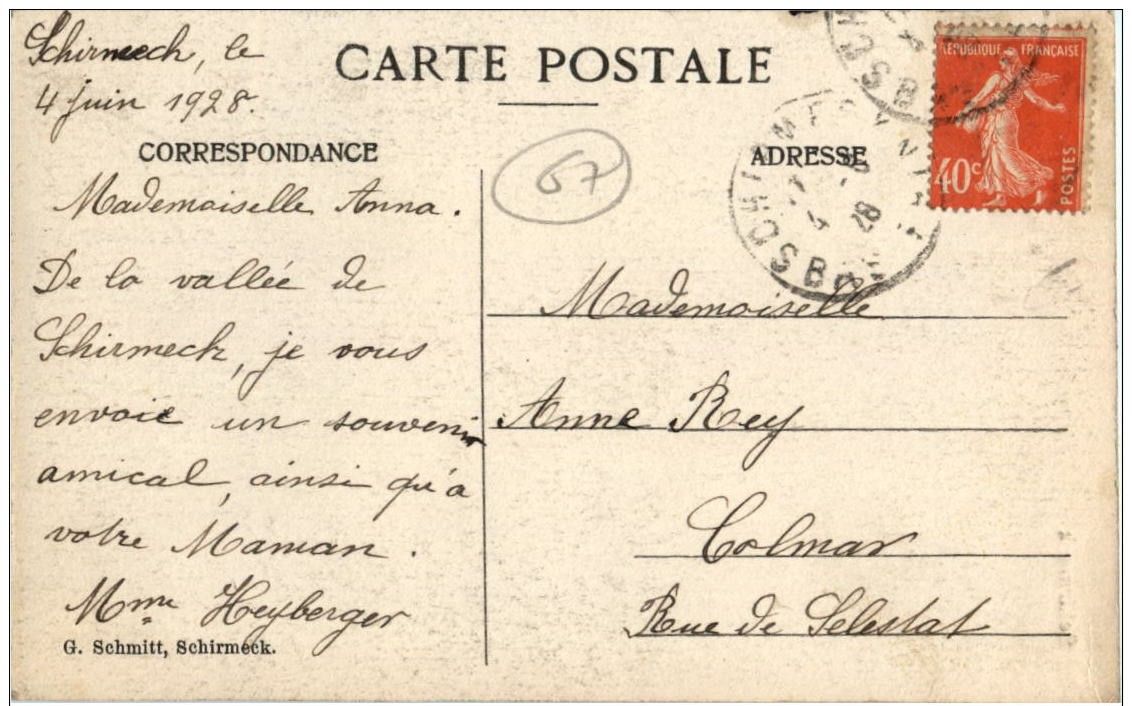 Schirmeck, le
4 juin 1928.
CARTE POSTALE
CORRESPONDANCE
Mademoiselle Anna.
De la vallée de
Schirmeck, je vous
envoie un souvenir
amical, ainsi qu'à
votre Maman.
Mme Heyberger
G. Schmitt, Schirmeck.
67
ADRESSE
RÉPUBLIQUE FRANÇAISE
40c
POSTES
Mademoiselle
Anne Rey
Colmar
Rue de Selestat